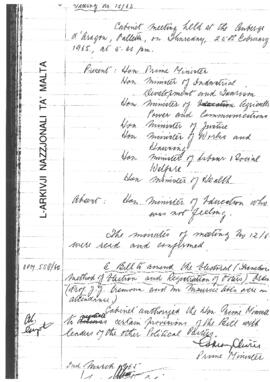 Meeting No 13/65
Cabinet meeting held at the Auberge
d'Aragon, Valletta, on Thursday, 25th February
1965, at
Present: Hon. Prime Minister
Hon. Minister of Industrial
Development and Tourism
Hon Minister of
Power and Communications
Hon Minister of Justice
Hon Minister of Works and
Housing
Hon. Minister of Labour & Social
Welfare
Hon Minister of Health.
Absent: Hon. Minister of Education who
was not feeling.
The minutes of meeting No 12/6
were read and confirmed.
L-ARKIVJI NAZZJONALI TA' MALTA
A Bill to amend the Electoral
Method of Election and Registration of Voters)
(Prof. J. J. Cremona and Mr Maurice were in
attendance)
Cabinet authorized the Hon Prime Minister
to certain provisions of the Bill with
leaders of the other Political Parties.
Prime Minister
2nd March 1965